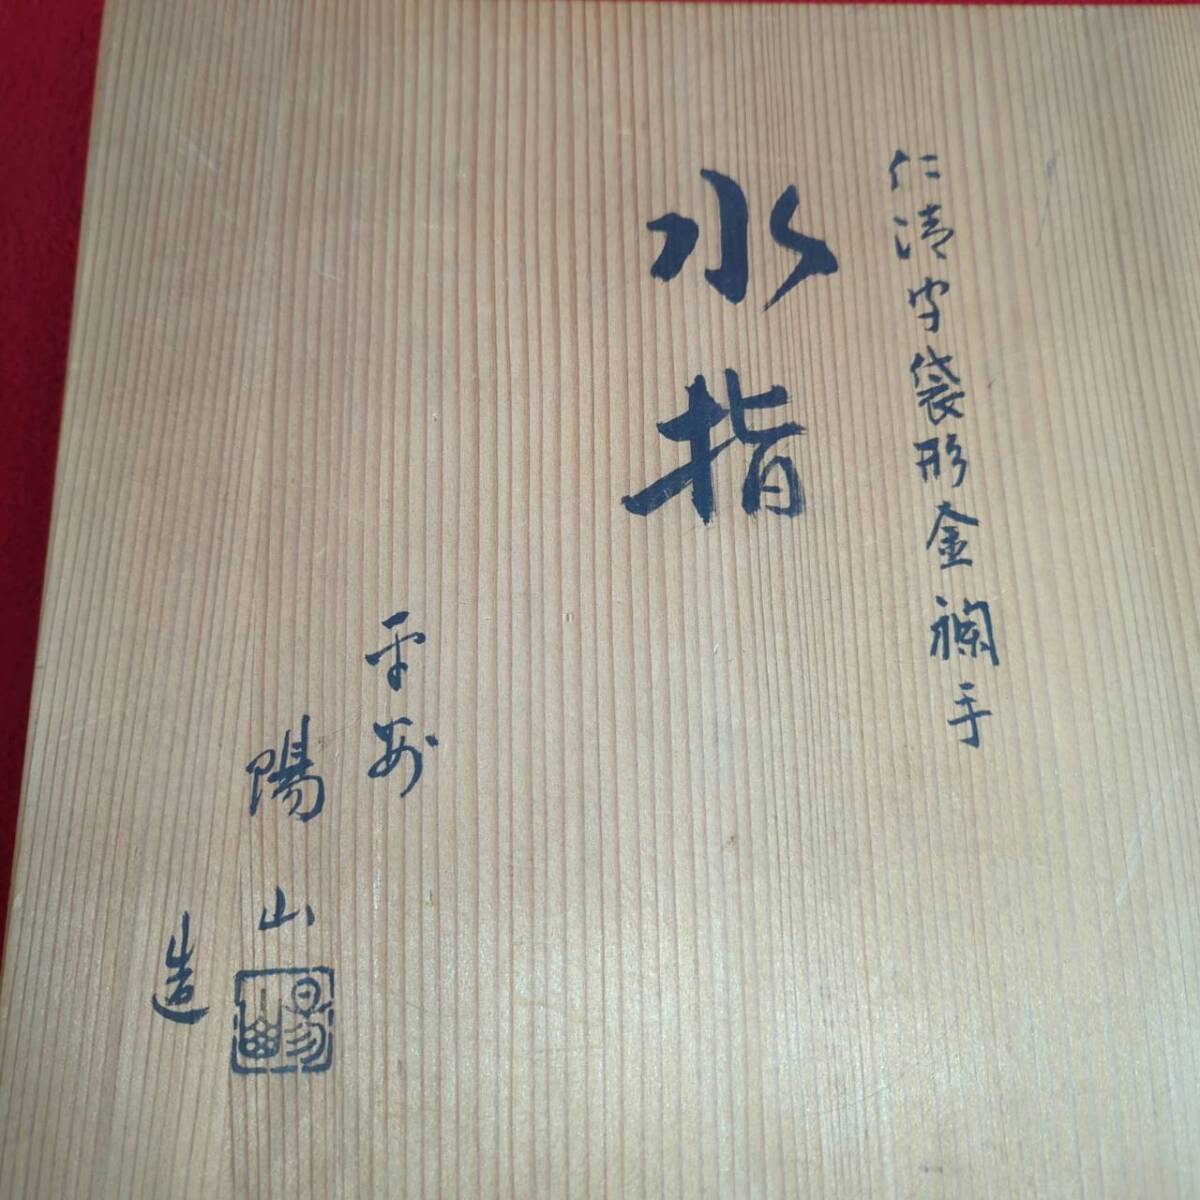 仁清写袋形金襴手
水指
平安
陽山
造